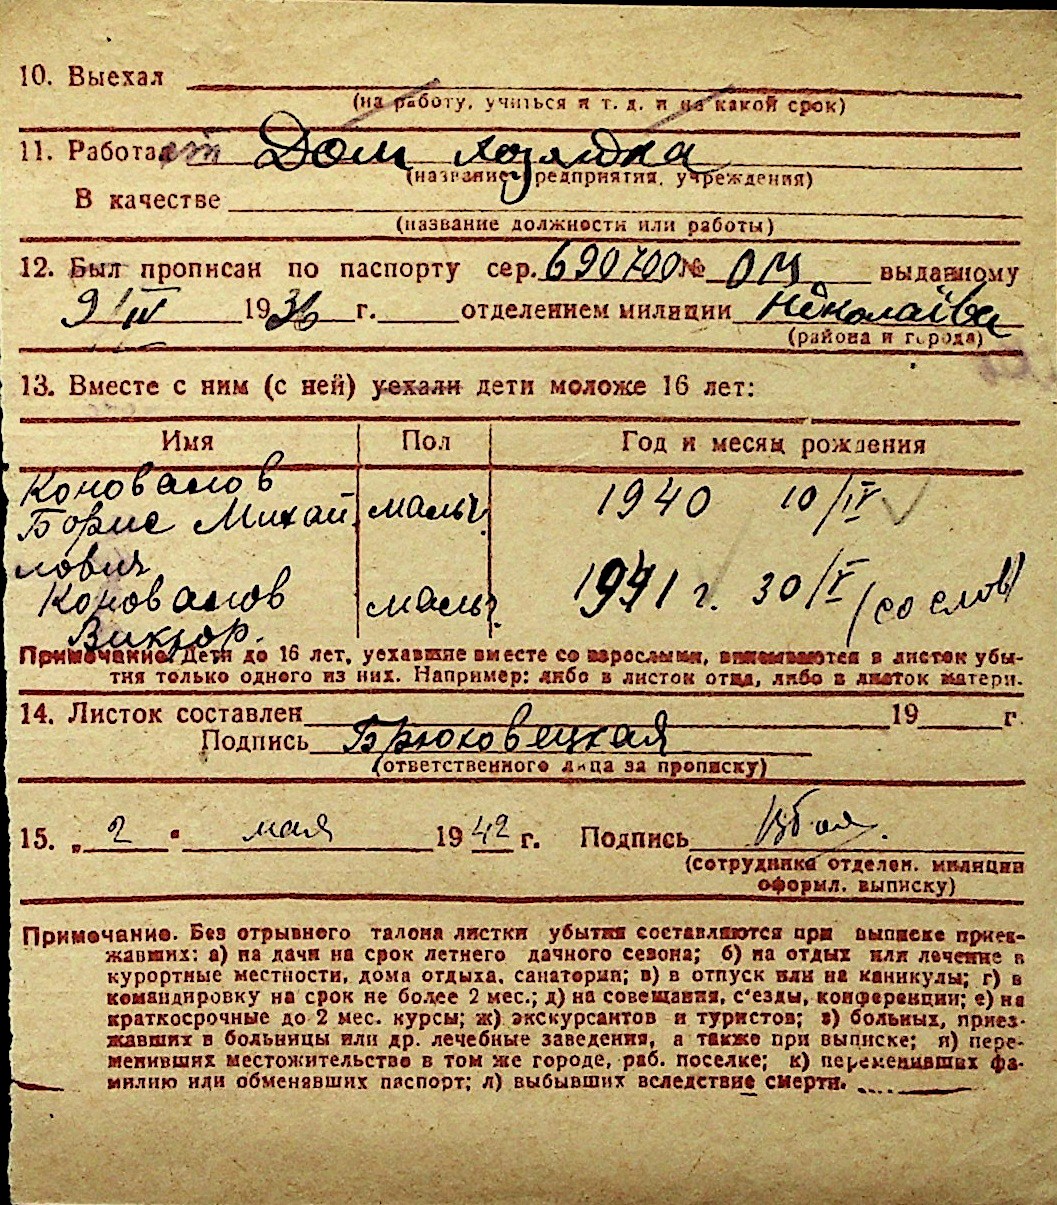 10. Выехал
(на работу, учиться и т. д. и на какой срок)
11. Работает Дом хозяйка
(название предприятия, учреждения)
В качестве
(название должности или работы)
12. Был прописан по паспорту сер. 690700 № ОМ выданному
9/IV 1936 г. отделением милиции Николаева
(района и города)
13. Вместе с ним (с ней) уехали дети моложе 16 лет:
Имя Пол Год и месяц рождения
Коновалов
Борис Михай мальч. 1940 10/IV
лович
Коновалов мальч. 1941 г. 30/V (со слов)
Виктор.
Примечание. Дети до 16 лет, уехавшие вместе со взрослыми, вписываются в листок убы-
тия только одного из них. Например: либо в листок отца, либо в листок матери.
14. Листок составлен 19 г.
Подпись Брюховецкая
(ответственного лица за прописку)
15. „ 2 " мая 1942 г. Подпись
(сотрудника отделен. милиции
оформл. выписку)
Примечание. Без отрывного талона листки убытия составляются при выписке приез-
жавших: а) на дачи на срок летнего дачного сезона; б) на отдых или лечение в
курортные местности, дома отдыха, санатории; в) в отпуск или на каникулы; г) в
командировку на срок не более 2 мес.; д) на совещания, с'езды, конференции; е) на
краткосрочные до 2 мес. курсы; ж) экскурсантов и туристов; з) больных, приез-
жавших в больницы или др. лечебные заведения, а также при выписке; и) пере-
менивших местожительство в том же городе, раб. поселке; к) переменивших фа-
милию или обменявших паспорт; л) выбывших вследствие смерти.